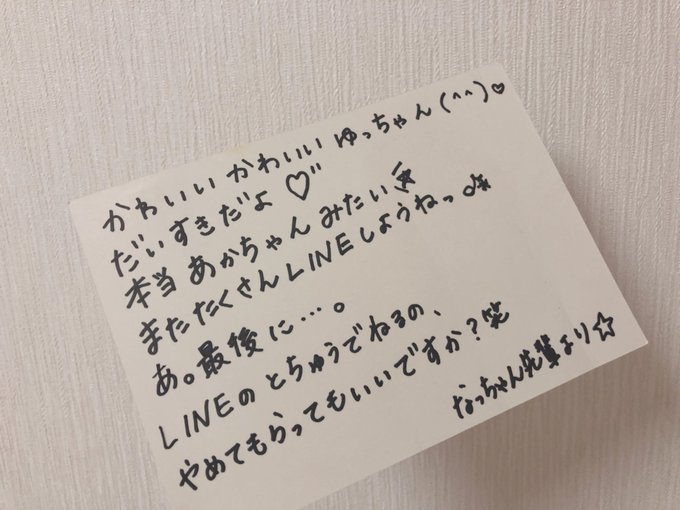 かわいいかわいいゆっちゃん(^^)♡
だいすきだよ♡
本当あかちゃんみたい☆
またたくさんLINEしようねっ♪
あ。最後に…。
LINEのとちゅうでねるの、
やめてもらってもいいですか?笑
なっちゃん先輩より☆